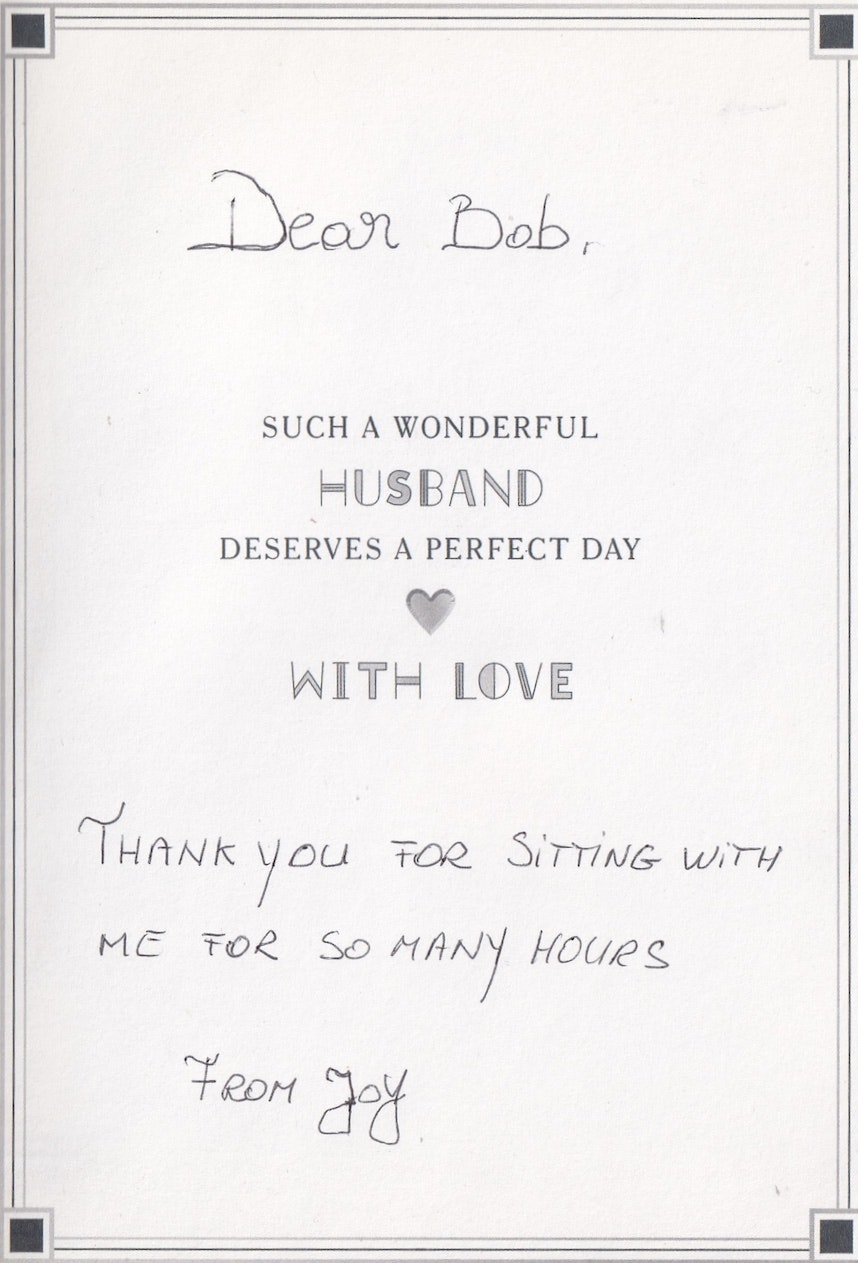 Dear Bob,
SUCH A WONDERFUL
HUSBAND
DESERVES A PERFECT DAY
WITH LOVE
THANK YOU FOR SiTTiNG WiTH
ME FOR SO MANY HOURS
FROM JOY